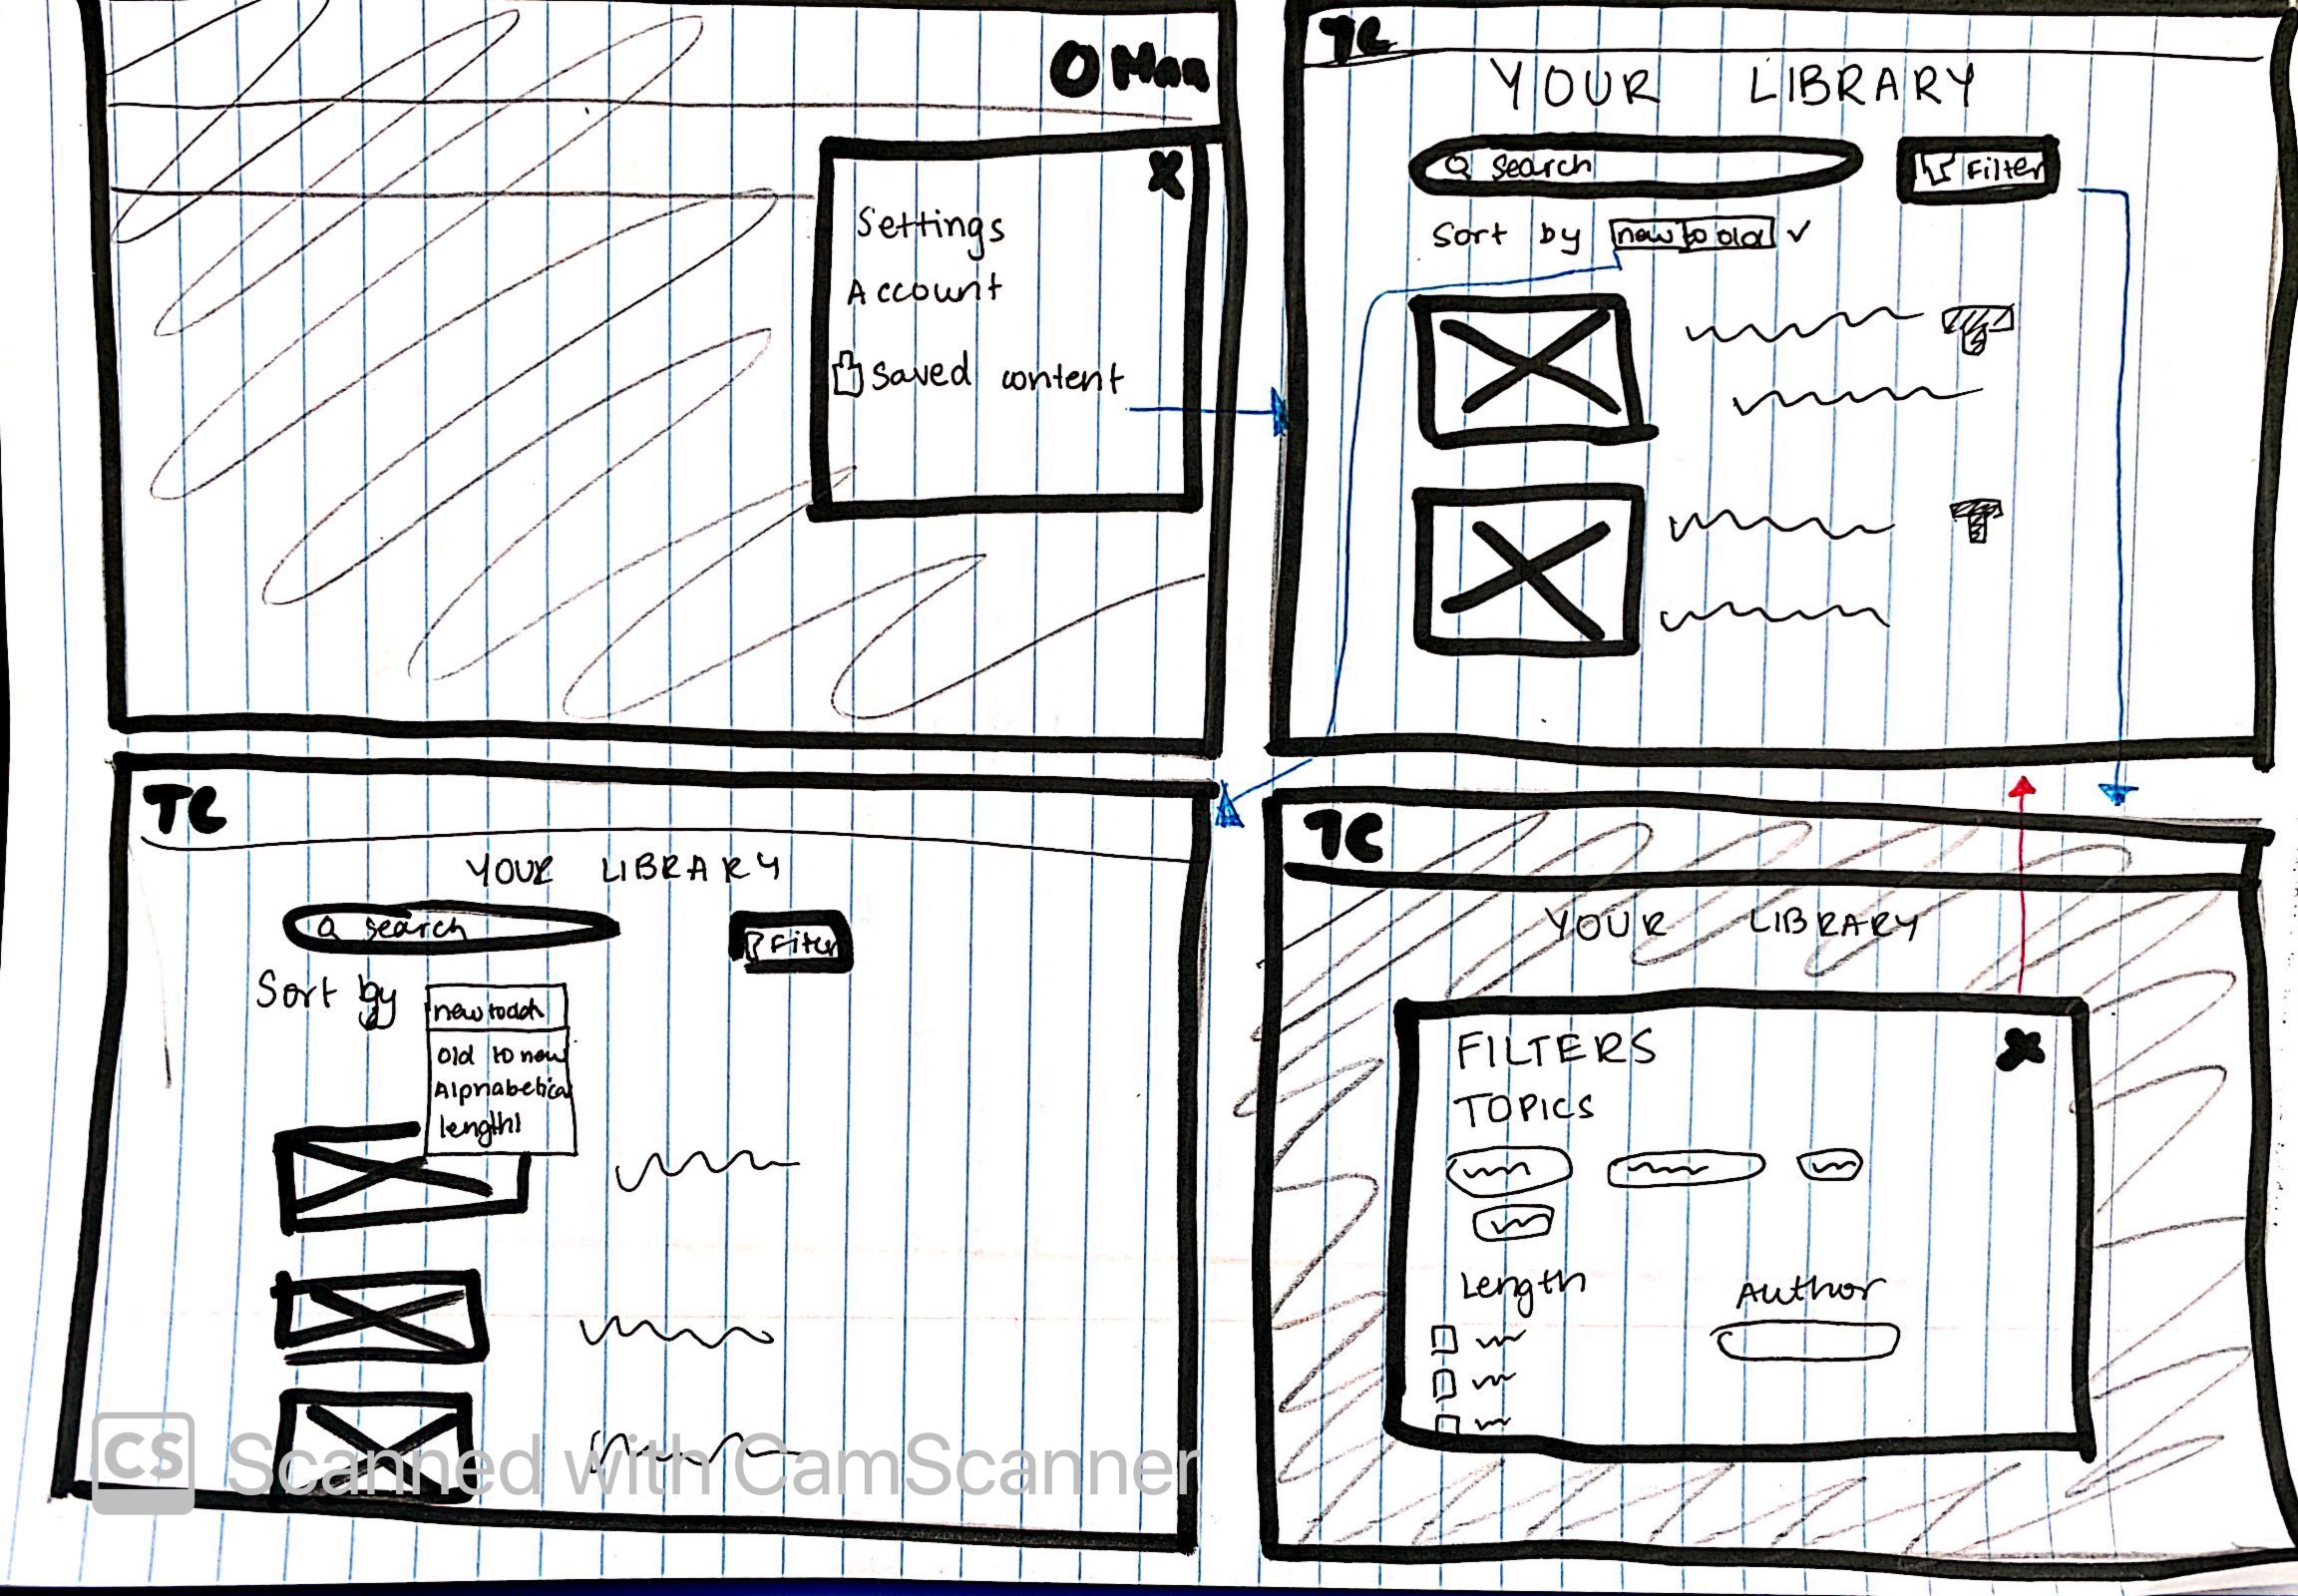 O Maa
X
Settings
Account
Saved content
TC
YOUR LIBRARY
search
Filter
Sort by new to old
TC
YOUR LIBRARY
search
Filter
Sort by
Old to new
Alphabetical
length
TC
YOUR LIBRARY
FILTERS
X
TOPICS
Length
Author
CS Scanned with CamScanner